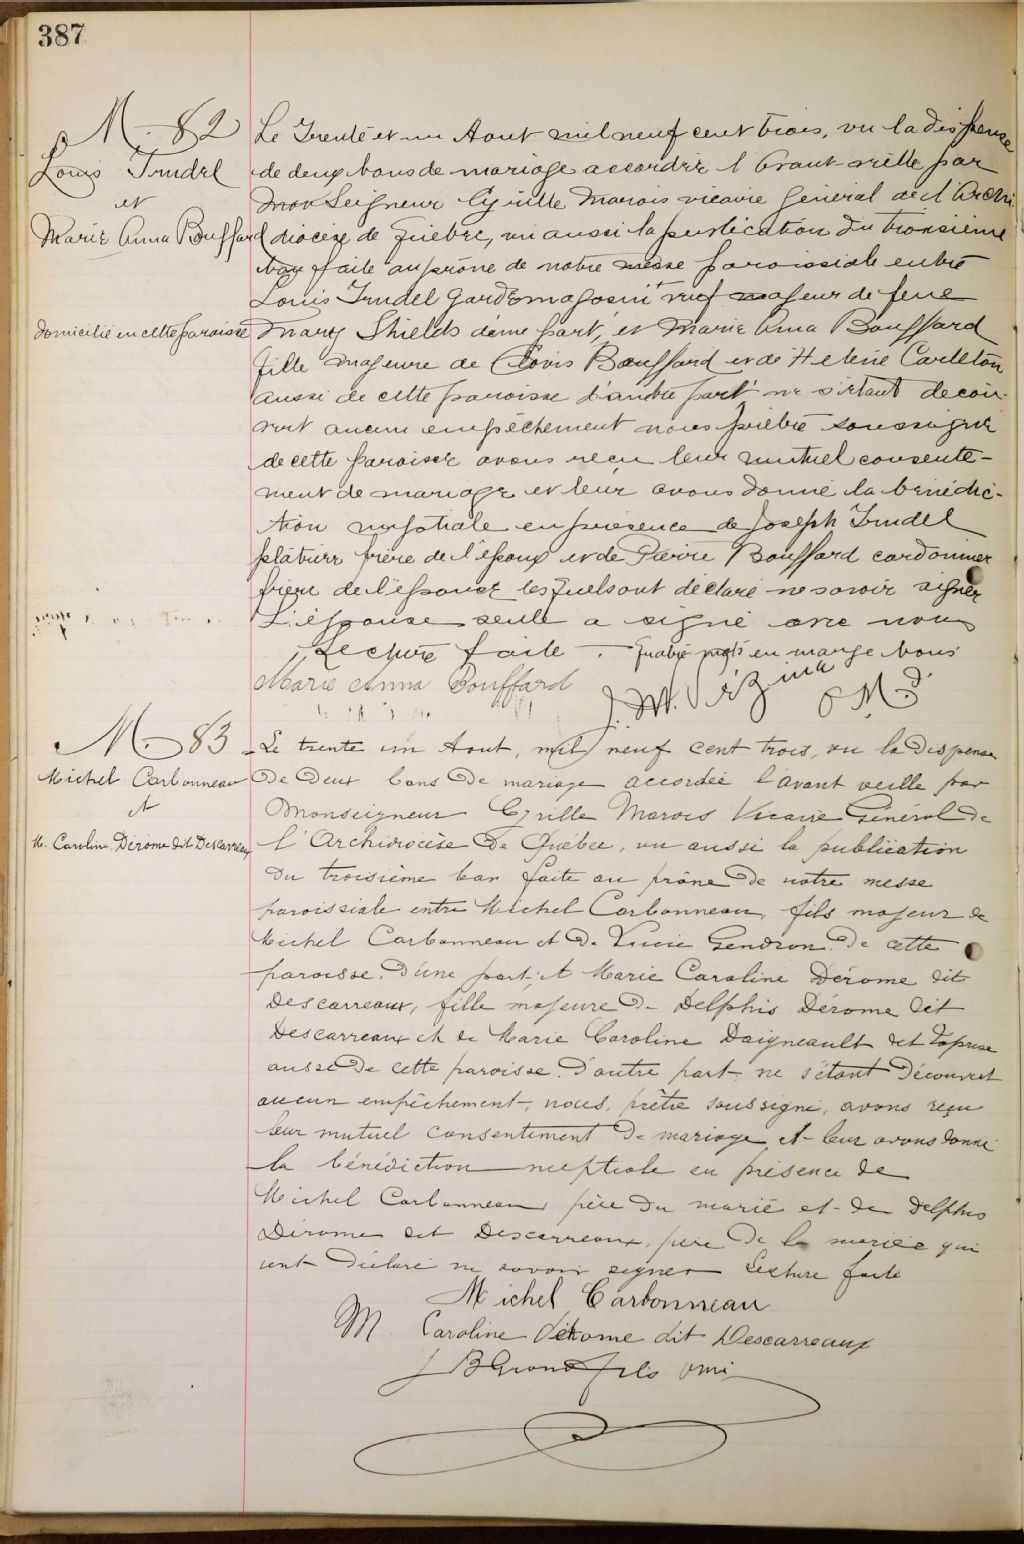 387
M. 82
Louis Trudel
et
Marie Anna Bouffard
domicilié en cette paroisse
Le Trente et un Aout mil neuf cent trois, vu la dispense
de deux bans de mariage accordée l'avant-veille par
Monseigneur Cyrille Marois vicaire général de l'Archi
diocèse de Québec, vu aussi la publication du troisième
ban faite au prône de notre messe paroissiale entre
Louis Trudel gardemagasin + veuf majeur de feue
Mary Shields d'une part, et Marie Anna Bouffard
fille majeure de Clovis Bouffard et de Helène Carleton
aussi de cette paroisse d'autre part ne s'étant décou-
vert aucun empêchement nous prêtre soussigné
de cette paroisse avons reçu leur mutuel consente-
ment de mariage et leur avons donné la bénédic-
tion nuptiale en présence de Joseph Trudel
plâtrier frère de l'époux et de Pierre Bouffard cordonnier
frère de l'épouse lesquels ont déclaré ne savoir signer
L'épouse seule a signé avec nous
Lecture faite. Quatre mots en marge bons
Marie Anna Bouffard
M. 83
Michel Carbonneau
et
M. Caroline Dérome dit Descarreaux
Le trente un Aout, mil neuf cent trois, vu la dispense
de deux bans de mariage accordée l'avant veille par
Monseigneur Cyrille Marois Vicaire Général de
l'Archidiocèse de Québec, vu aussi la publication
du troisième ban faite au prône de notre messe
paroissiale entre Michel Carbonneau, fils majeur de
Michel Carbonneau et de Lucie Gendron de cette
paroisse d'une part, et Marie Caroline Dérome dit
Descarreaux, fille majeure de Delphis Dérome dit
Descarreaux et de Marie Caroline Daigneault dit Laprise
aussi de cette paroisse d'autre part ne s'étant découvert
aucun empêchement, nous, prêtre soussigné, avons reçu
leur mutuel consentiment de mariage et leur avons donné
la bénédiction nuptiale en présence de
Michel Carbonneau père du marié et de Delphis
Dérome dit Descarreaux, père de la mariée qui
ont déclaré ne savoir signer Lecture faite
Michel Carbonneau
M Caroline Dérome dit Descarreaux